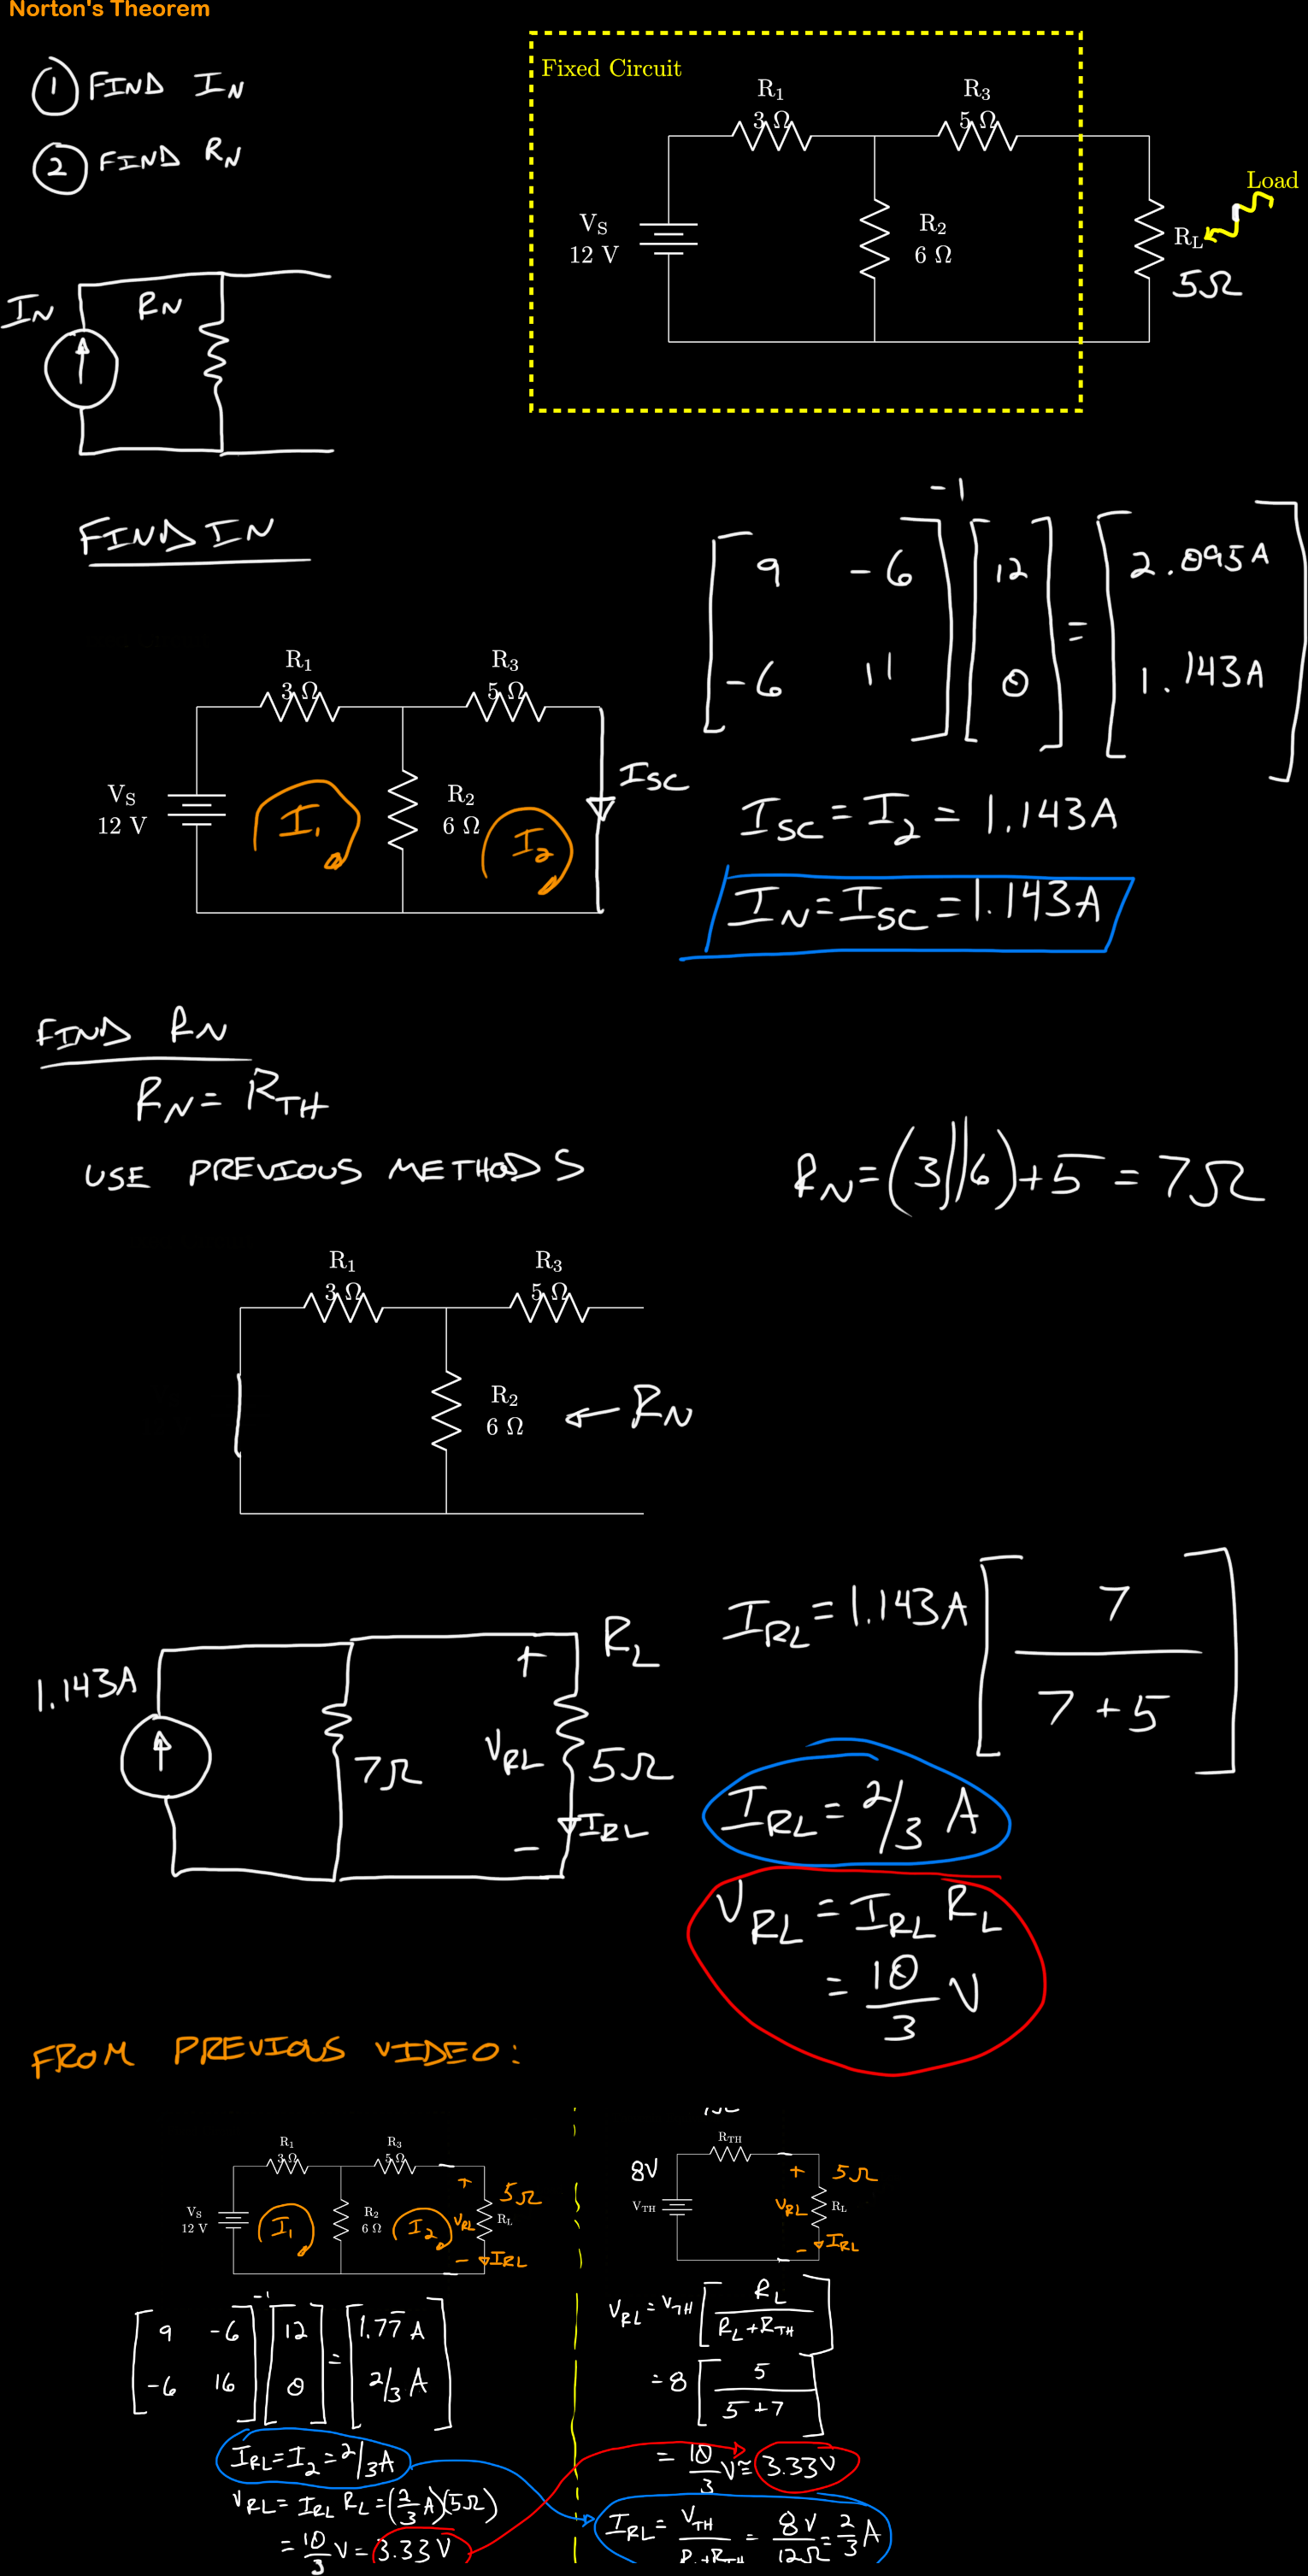 Norton's Theorem
① FIND I_N
② FIND R_N
I_N
R_N
Fixed Circuit
R₁
3 Ω
R₃
5 Ω
V_S
12 V
R₂
6 Ω
Load
R_L
5Ω
FIND IN
R₁
3 Ω
R₃
5 Ω
V_S
12 V
I₁
R₂
6 Ω
I₂
I_SC
[9 -6; -6 11]^-1 [12; 0] = [2.095A; 1.143A]
I_SC = I₂ = 1.143A
I_N = I_SC = 1.143A
FIND R_N
R_N = R_TH
USE PREVIOUS METHODS
R_N = (3||6)+5 = 7Ω
R₁
3 Ω
R₃
5 Ω
R₂
6 Ω
← R_N
1.143A
7Ω
+
V_RL
-
R_L
5Ω
I_RL
I_RL = 1.143A [7/(7+5)]
I_RL = 2/3 A
V_RL = I_RL R_L
= 10/3 V
FROM PREVIOUS VIDEO:
R₁
3 Ω
R₃
5 Ω
V_S
12 V
I₁
R₂
6 Ω
I₂
+
V_RL
-
5Ω
R_L
I_RL
[9 -6; -6 16]^-1 [12; 0] = [1.77 A; 2/3 A]
I_RL = I₂ = 2/3 A
V_RL = I_RL R_L = (2/3 A)(5Ω)
= 10/3 V = 3.33 V
R_TH
8V
V_TH
+
V_RL
-
5Ω
R_L
I_RL
V_RL = V_TH [R_L/(R_L+R_TH)]
= 8 [5/(5+7)]
= 10/3 V ≅ 3.33V
I_RL = V_TH/(R_L+R_TH) = 8V/12Ω = 2/3 A